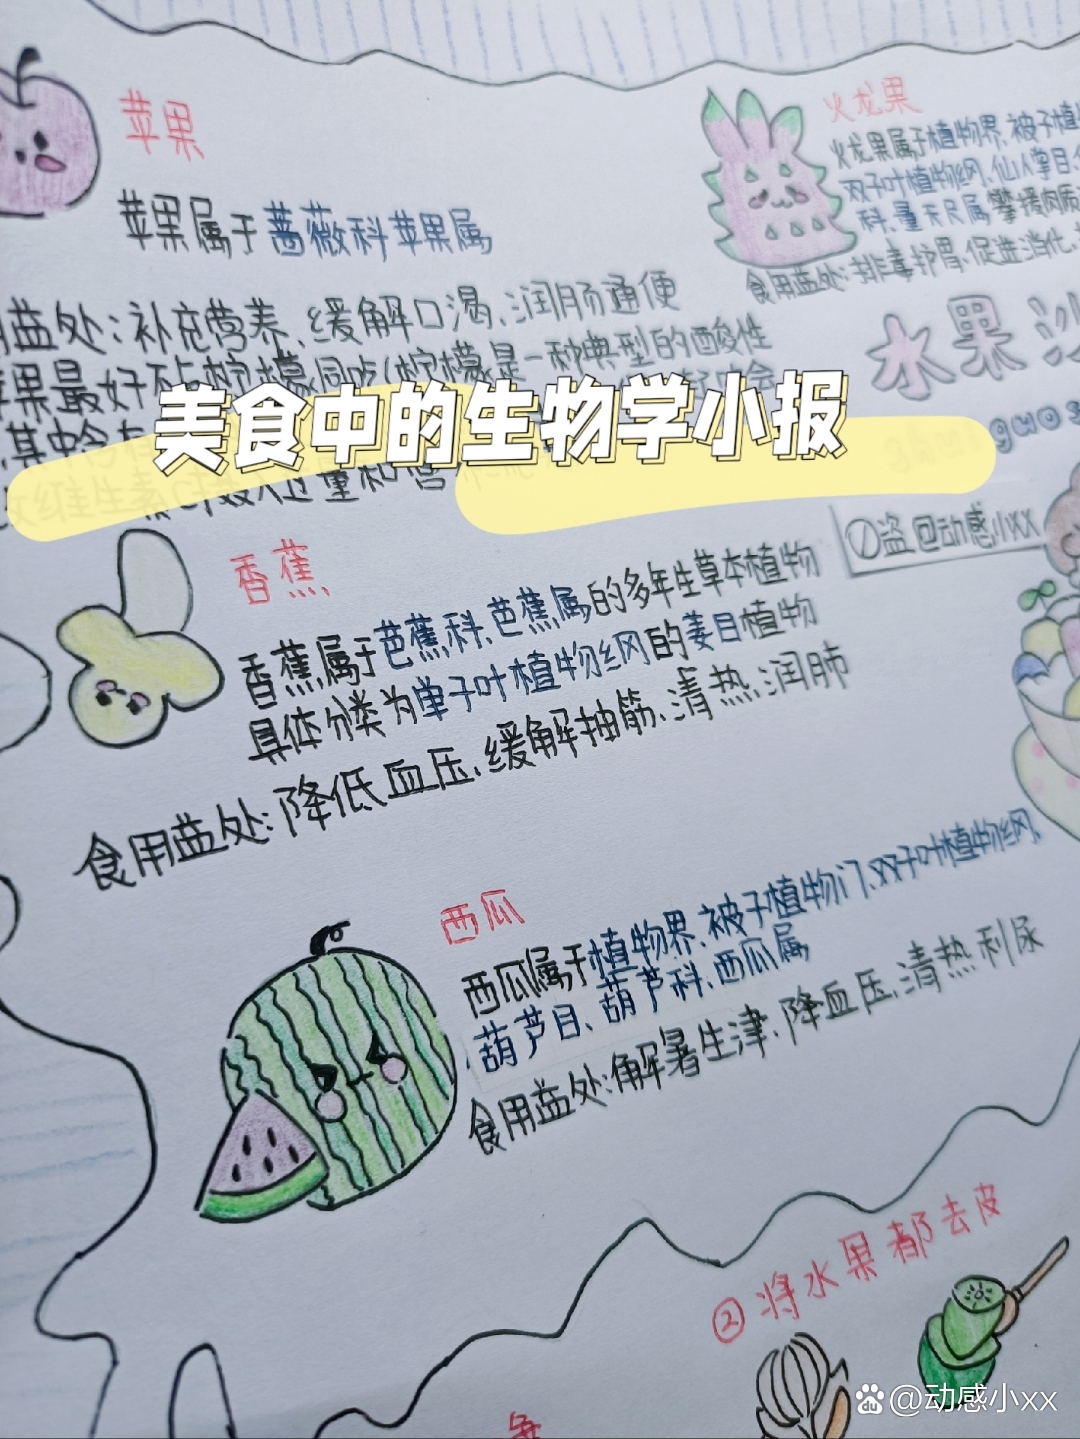 苹果
苹果属于蔷薇科苹果属
益处:补充营养、缓解口渴、润肠通便
苹果最好不与柠檬同吃(柠檬是一种典型的酸性
其中含有
维生素C
过量和营
火龙果
火龙果属于植物界、被子植
双子叶植物纲、仙人掌目、
科、量天尺属 攀援肉质
食用益处:排毒护胃、促进消化、
水果沙
guos
美食中的生物学小报
盗@动感小xx
香蕉
香蕉属于芭蕉科、芭蕉属的多年生草本植物
具体分类为单子叶植物纲的姜目植物
食用益处:降低血压、缓解抽筋、清热润肺
西瓜
西瓜属于植物界、被子植物门、双子叶植物纲、
葫芦目、葫芦科、西瓜属
食用益处:解暑生津、降血压、清热利尿
②将水果都去皮
@动感小xx